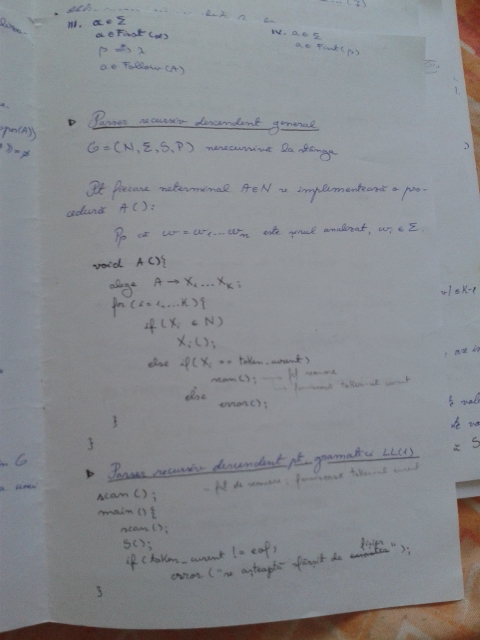 III. a ∈ Σ
a ∈ First(α)
β ⇒ λ
a ∈ Follow(A)
IV. a ∈ Σ
a ∈ First(β)
Parser recursiv descendent general
G = (N, Σ, S, P) nerecursivă la stânga
Pt fiecare neterminal A∈N se implementează o pro-
cedură A():
Pp că w = w1...wn este șirul analizat, wi ∈ Σ.
void A(){
alege A → X1...XK;
for (i = 1,...K){
if (Xi ∈ N)
Xi();
else if (Xi == token_curent)
scan();
furnizează token-ul curent
else
error();
}
}
Parser recursiv descendent pt. gramatici LL(1)
scan(); - fct de scanare; furnizează token-ul curent
main(){
scan();
S();
if (token_curent != eof)
error ("se așteaptă sfârșit de fișier");
}